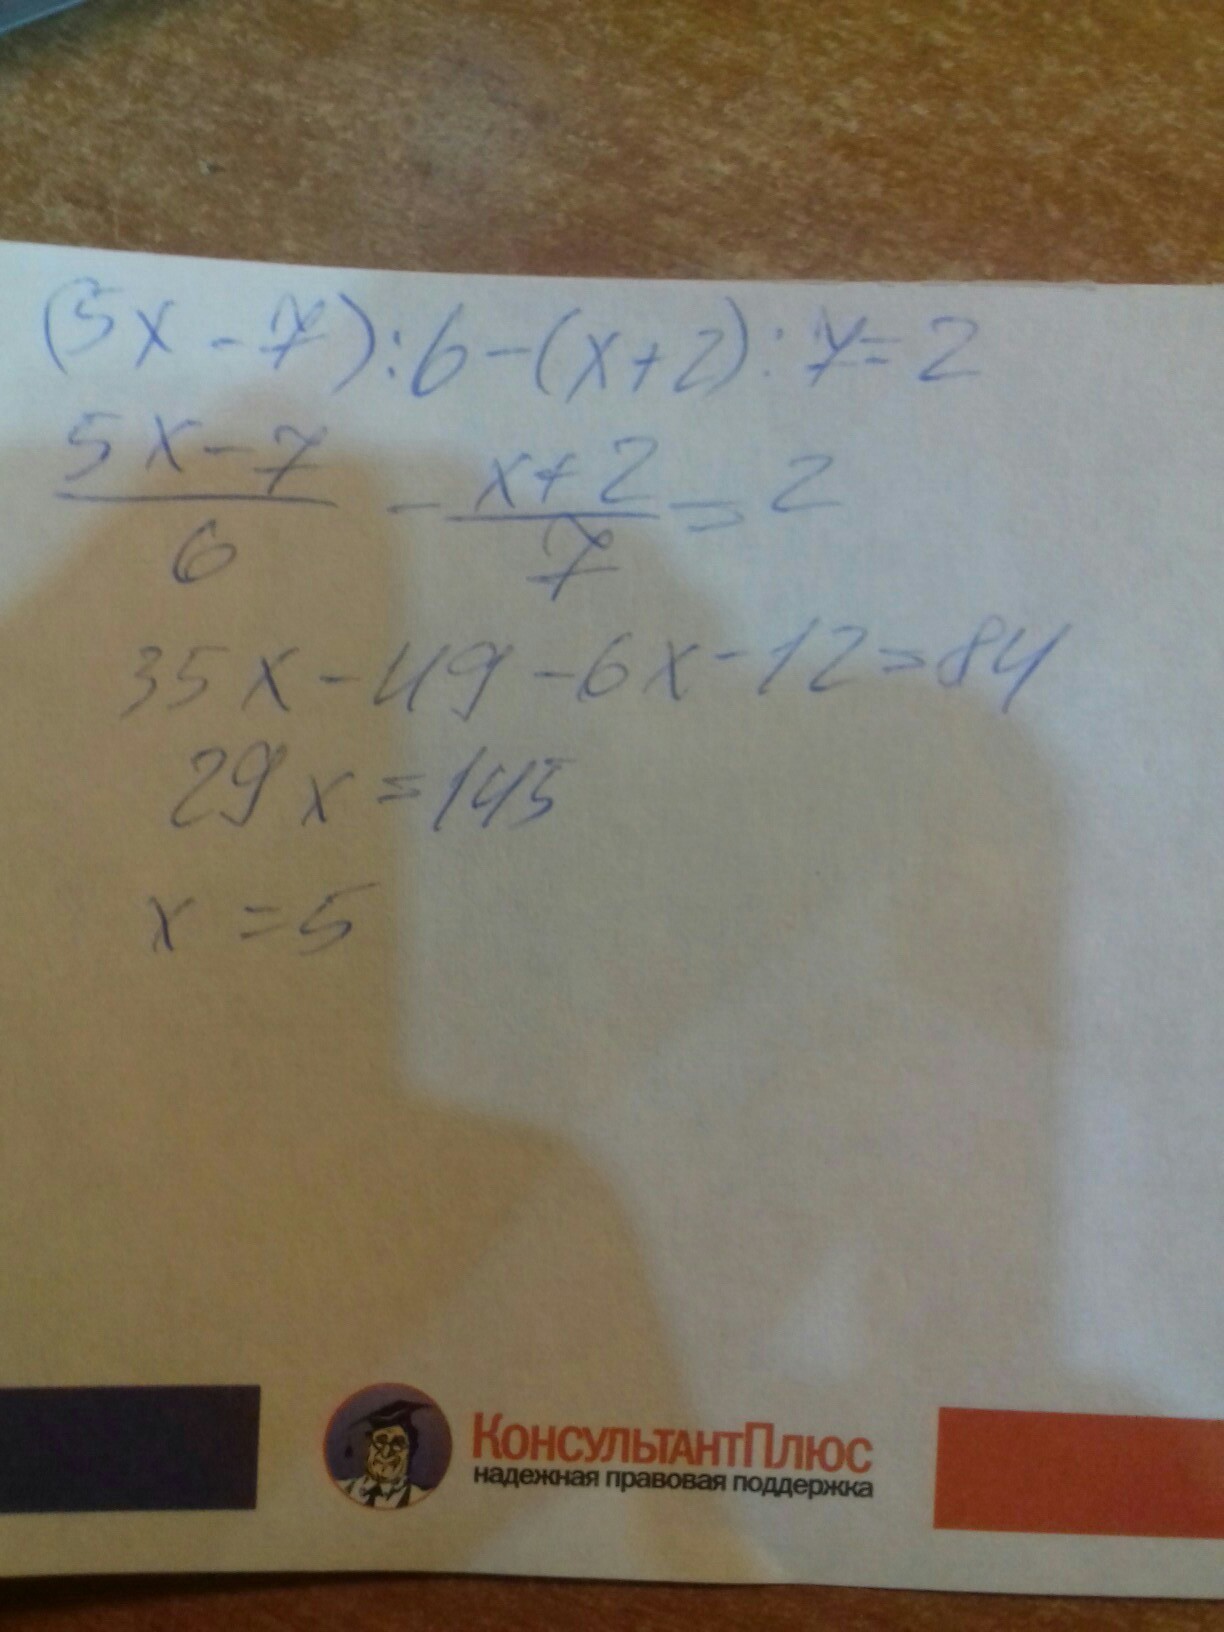 (5x - 7) : 6 - (x + 2) : 7 = 2
5x - 7
6
- x + 2
7
= 2
35x - 49 - 6x - 12 = 84
29x = 145
x = 5
КОНСУЛЬТАНТПЛЮС
надежная правовая поддержка